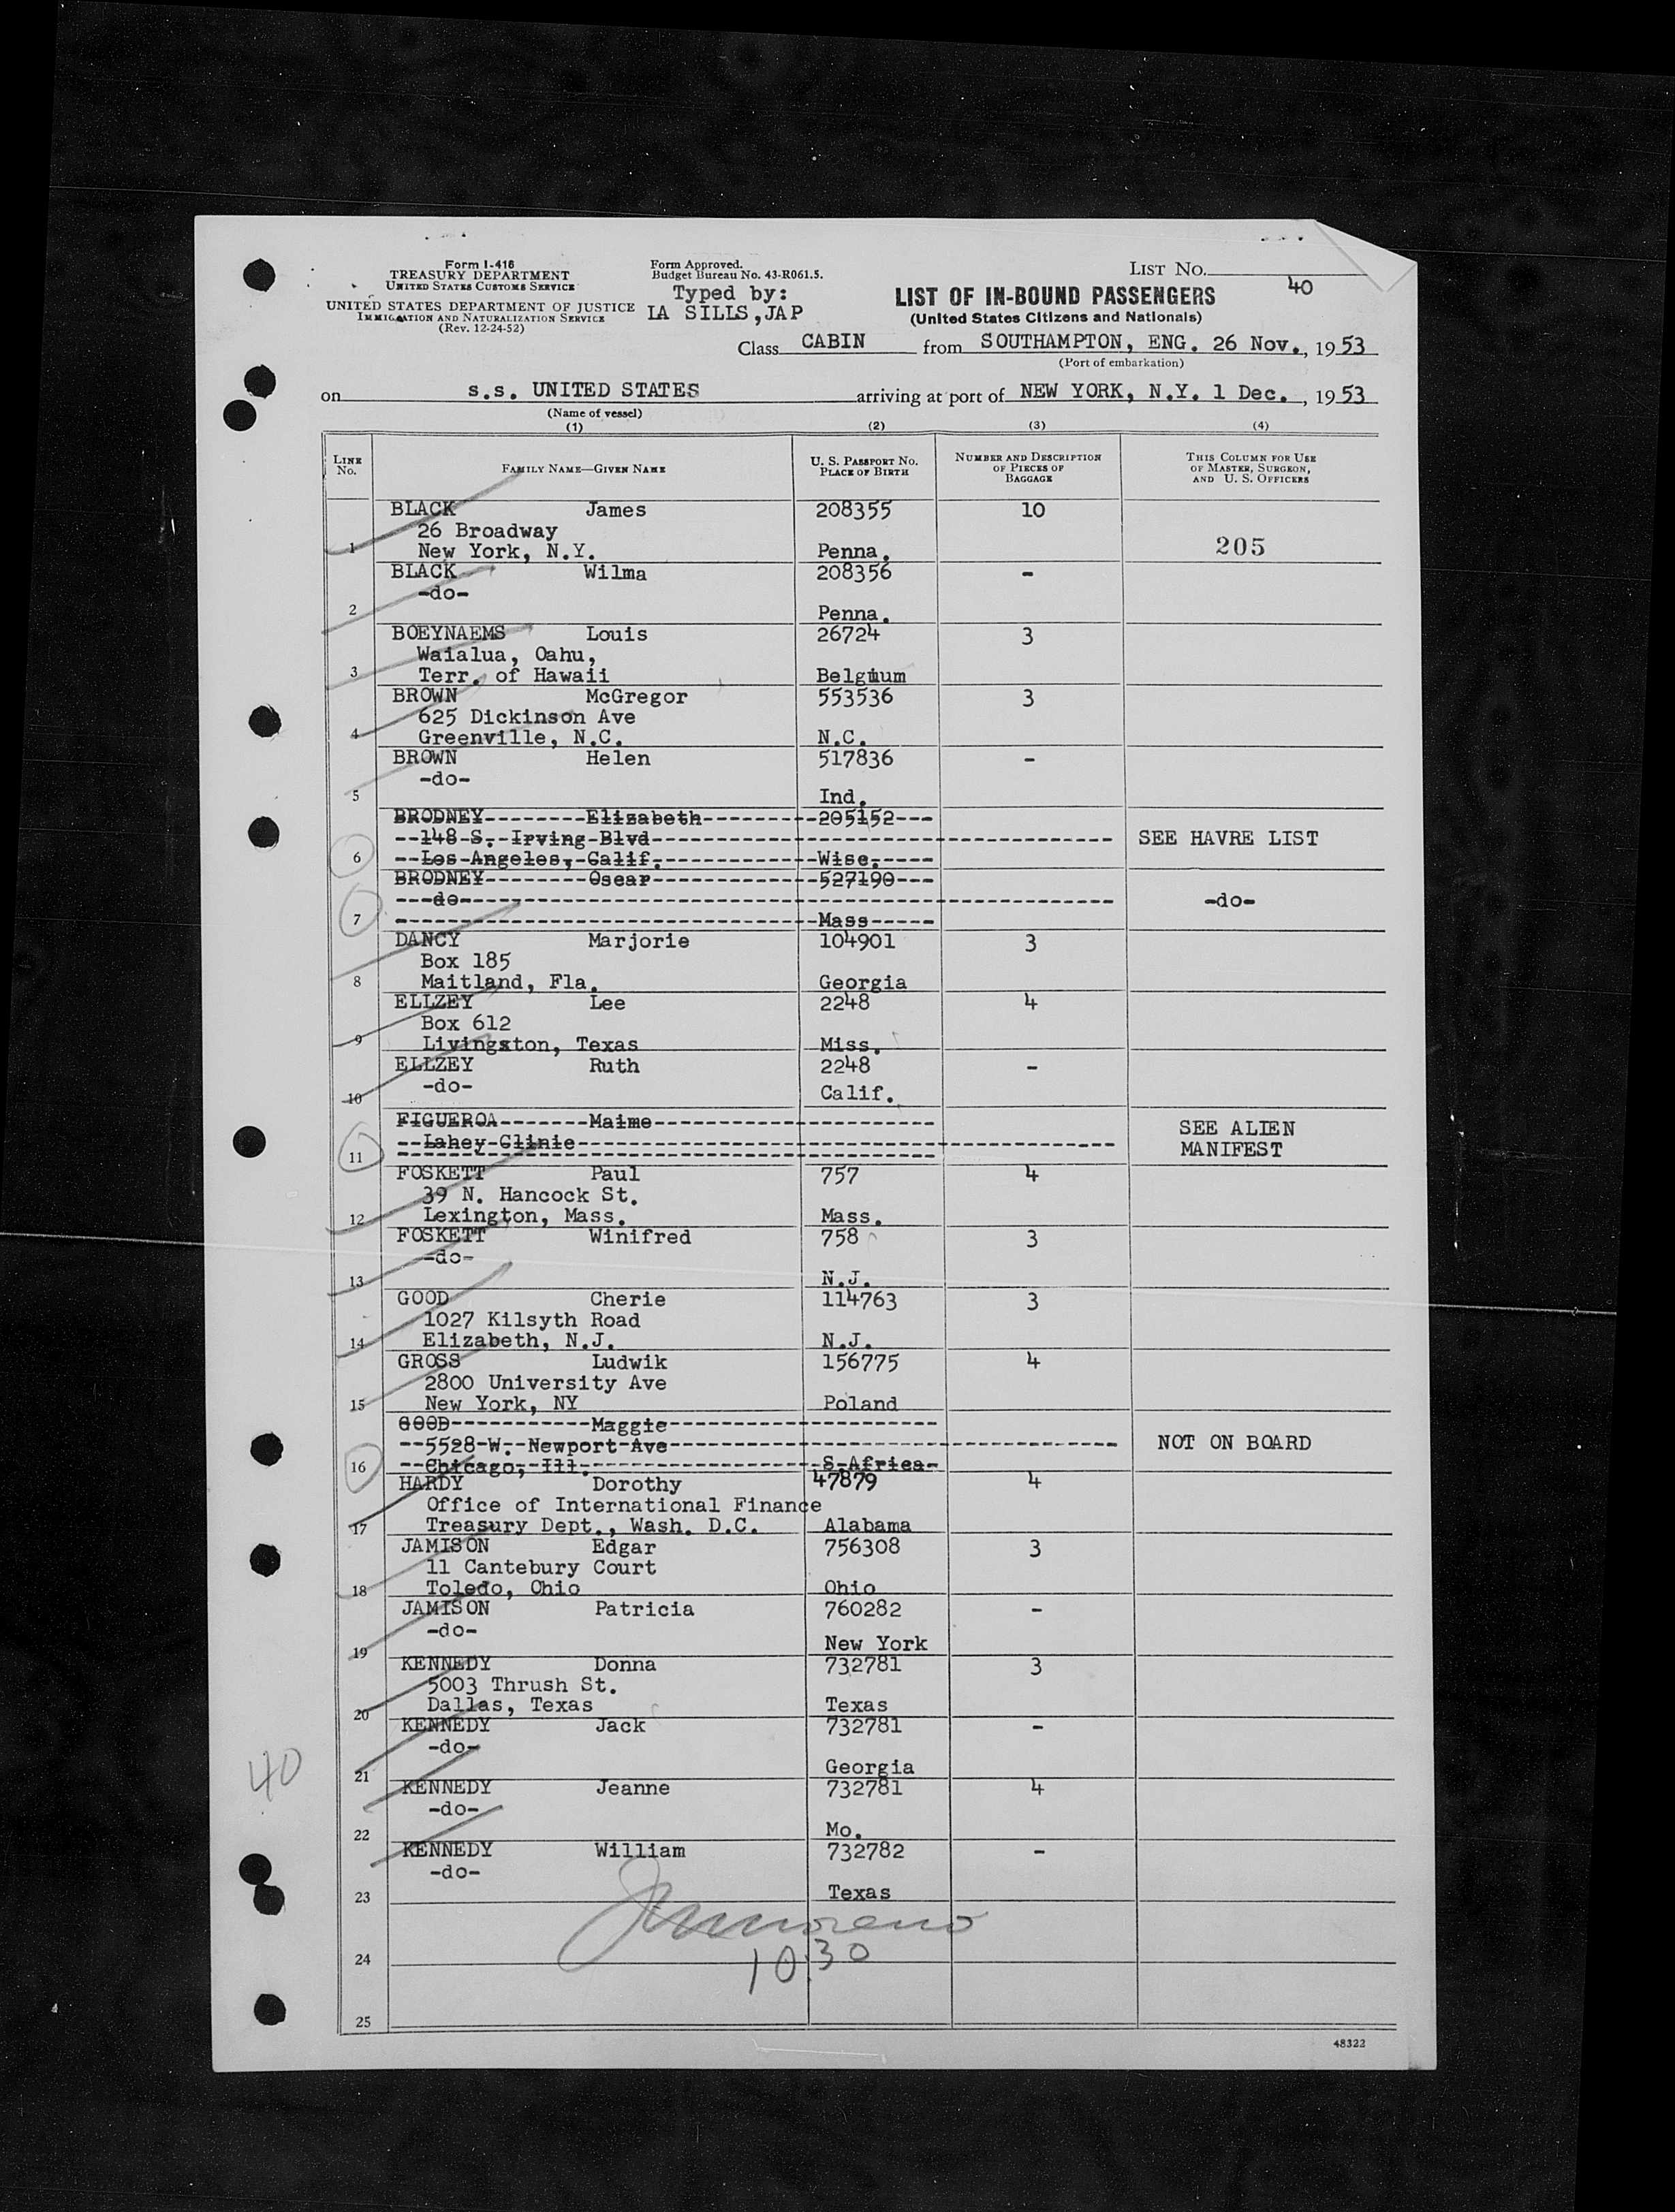 Form I-416
TREASURY DEPARTMENT
UNITED STATES CUSTOMS SERVICE
UNITED STATES DEPARTMENT OF JUSTICE
IMMIGRATION AND NATURALIZATION SERVICE
(Rev. 12-24-52)
Form Approved.
Budget Bureau No. 43-R061.5.
Typed by:
IA SILLS,JAP
LIST NO. 40
LIST OF IN-BOUND PASSENGERS
(United States Citizens and Nationals)
Class CABIN from SOUTHAMPTON, ENG. 26 Nov., 1953
(Port of embarkation)
on s.s. UNITED STATES arriving at port of NEW YORK, N.Y. 1 Dec., 1953
(Name of vessel)
(1) (2) (3) (4)
LINE NO. FAMILY NAME—GIVEN NAME U. S. PASSPORT NO. PLACE OF BIRTH NUMBER AND DESCRIPTION OF PIECES OF BAGGAGE THIS COLUMN FOR USE OF MASTER, SURGEON, AND U. S. OFFICERS
BLACK James 208355 10
26 Broadway
1 New York, N.Y. Penna. 205
BLACK Wilma 208356 -
-do-
2 Penna.
BOEYNAEMS Louis 26724 3
Waialua, Oahu,
3 Terr. of Hawaii Belgium
BROWN McGregor 553536 3
625 Dickinson Ave
4 Greenville, N.C. N.C.
BROWN Helen 517836 -
-do-
5 Ind.
BRODNEY--------Elisabeth---------205152---
--148-S.-Irving-Blvd--- SEE HAVRE LIST
6 --Los-Angeles,-Calif.------------Wisc.-----
BRODNEY--------Oscar-------------527190---
---do--- -do-
7 Mass-----
DANCY Marjorie 104901 3
Box 185
8 Maitland, Fla. Georgia
ELLZEY Lee 2248 4
Box 612
9 Livingston, Texas Miss.
ELLZEY Ruth 2248 -
-do-
10 Calif.
FIGUEROA-------Maime---
--Lahey-Clinic--- SEE ALIEN
11 MANIFEST
FOSKETT Paul 757 4
39 N. Hancock St.
12 Lexington, Mass. Mass.
FOSKETT Winifred 758 3
-do-
13 N.J.
GOOD Cherie 114763 3
1027 Kilsyth Road
14 Elizabeth, N.J. N.J.
GROSS Ludwik 156775 4
2800 University Ave
15 New York, NY Poland
GOOD-----------Maggie---
--5528-W.-Newport-Ave--- NOT ON BOARD
16 --Chicago,-Ill.------------------S-Africa-
HARDY Dorothy 47879 4
Office of International Finance
17 Treasury Dept., Wash. D.C. Alabama
JAMISON Edgar 756308 3
11 Cantebury Court
18 Toledo, Ohio Ohio
JAMISON Patricia 760282 -
-do-
19 New York
KENNEDY Donna 732781 3
5003 Thrush St.
20 Dallas, Texas Texas
KENNEDY Jack 732781 -
-do-
21 Georgia
40
KENNEDY Jeanne 732781 4
-do-
22 Mo.
KENNEDY William 732782 -
-do-
23 Texas
24 10:30
25
48322